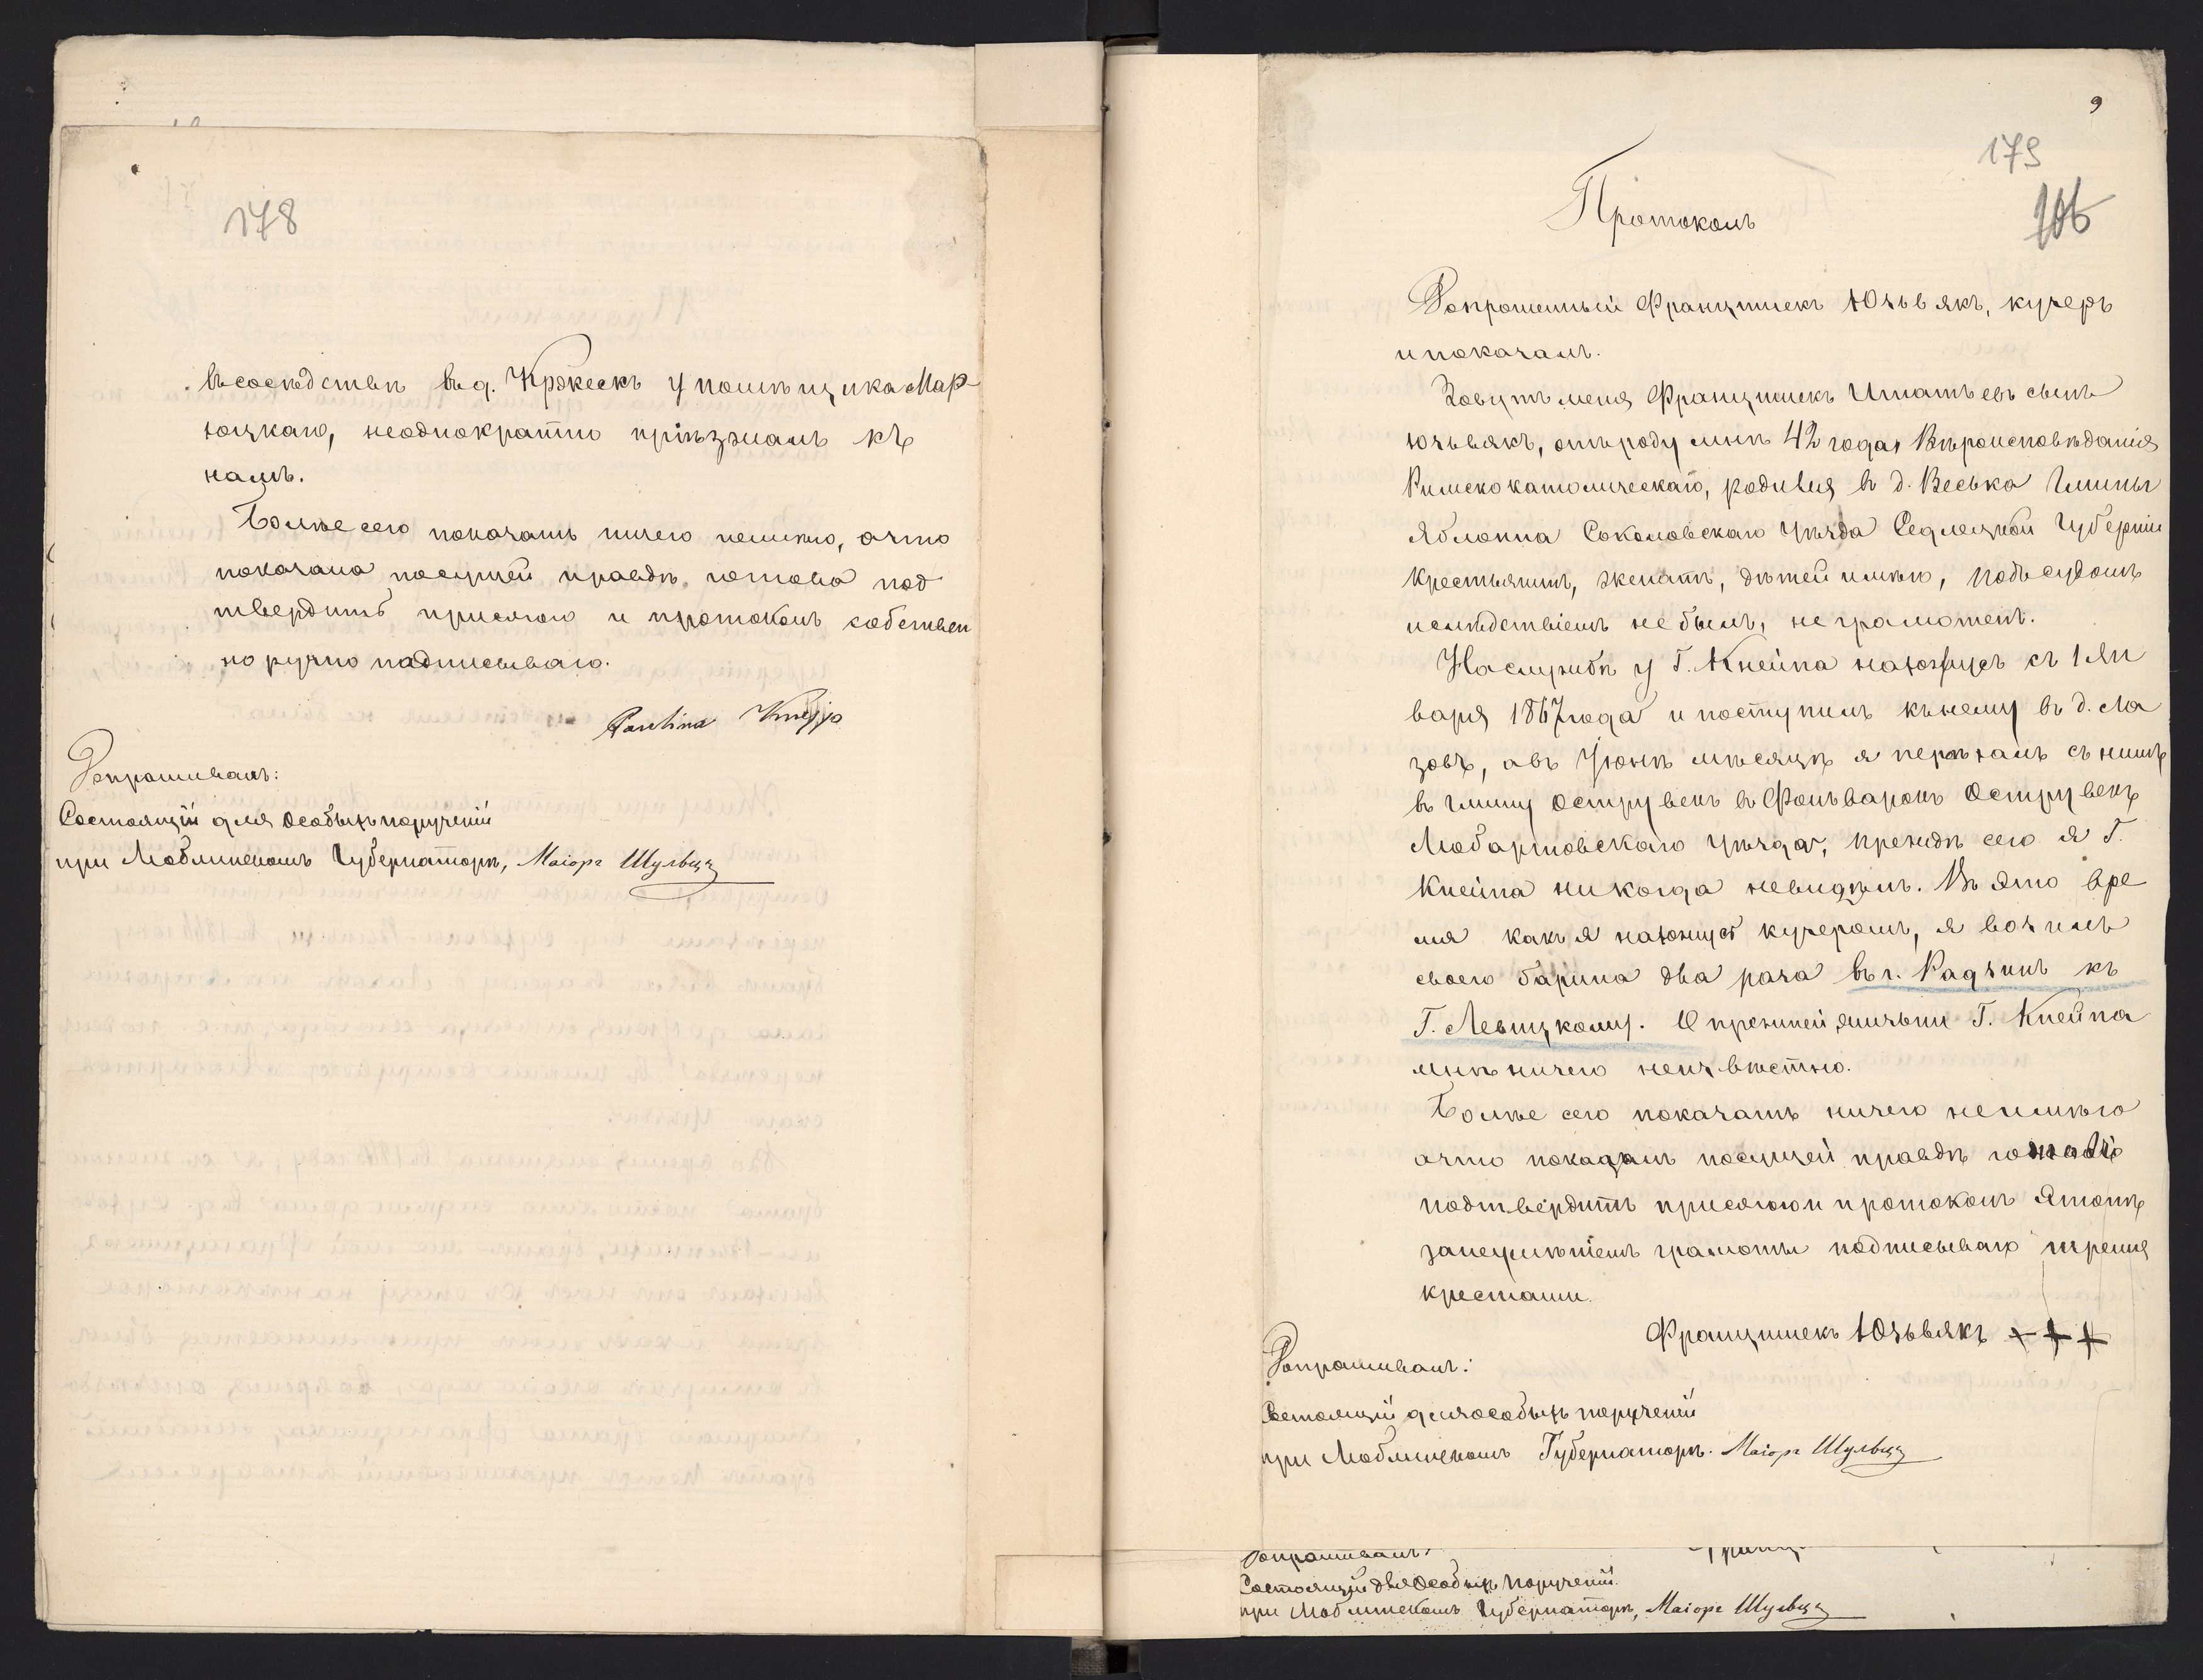 178
въ соседствѣ въ д. Кржескъ у помѣщика Мар-
юцкаго, неоднократно пріѣзжалъ къ
намъ.
Болѣе сего показать ничего неимѣю, ачто
показала посущей правдѣ готова под
твердить присягою и протоколъ собствен
но ручно подписываю.
Paulina
Допрашивалъ:
Состоящій для Особыхъ порученій
при Люблинскомъ Губернаторѣ, Маіоръ Шульцъ
9
179
106
Протоколъ
Допрошенный Францишекъ Юзьвякъ, кучеръ
и показалъ.
Зовутъ меня Францишекъ Игнатьевъ сынъ
Юзьвякъ, отъ роду мнѣ 42 года, Вѣроисповѣданія
Римскокатолическаго, родился в д. Веська Гмины
Яблонна Соколовскаго Уѣзда Седлецкой Губерніи
крестьянинъ, женатъ, дѣтей имѣю, подъ судомъ
ислѣдствіемъ не былъ, не грамотенъ.
На службѣ у Г. Кнейпа нахожусъ съ 1 Ян
варя 1867 года и поступилъ къ нему въ д. Ла
зовъ, авъ Іюнѣ мѣсяцѣ я переѣхалъ съ нимъ
въ гмину Острувекъ въ Фольварокъ Острувекъ
Любартовскаго Уѣзда, прежде сего я Г.
Кнейпа никогда невидѣлъ. Въ это вре
мя какъ я нахожусъ кучеромъ, я возилъ
своего барина два раза въ г. Радзинъ къ
Г. Левицкому. О прежней жизни Г. Кнейпа
мнѣ ничего неизвѣстно.
Болѣе сего показать ничего неимѣю
ачто показалъ посущей правдѣ готовъ
подтвердить присягою и протоколъ этотъ
занеумѣніемъ грамоты подписываю тремя
крестами.
Францишекъ Юзьвякъ + + +
Допрашивалъ:
Состоящій для особыхъ порученій
при Люблинскомъ Губернаторѣ. Маіоръ Шульцъ
Допрашивалъ:
Состоящій для Особыхъ порученій
при Люблинскомъ Губернаторѣ, Маіоръ Шульцъ